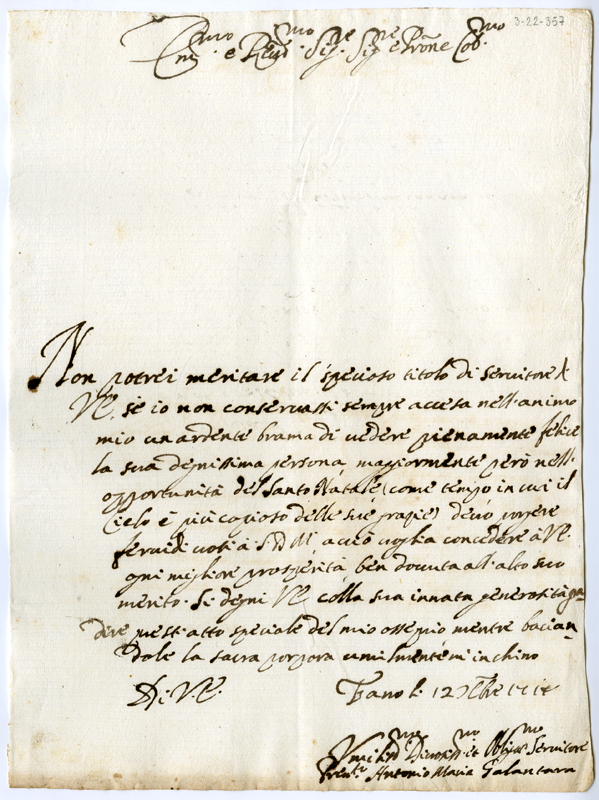 3-22-357
Em.mo e Reu.mo Sig.re Sig.re e Prône Col.mo
Non potrei meritare il specioso titolo di seruitore di
VE, se io non conseruassi sempre accesa nell'animo
mio un ardente brama di uedere pienamente felice
la sua degnissima persona, maggiormente però nell'
opportunità del Santo Natale (come tempo in cui il
Cielo è più copioso delle sue grazie) deuo porgere
feruidi uoti à S.D.M. acciò uoglia concedere à VE.
ogni migliore prosperità, ben douuta all'alto suo
merito. Si degni VE colla sua innata generosità gra-
dire quest'atto speciale del mio ossequio mentre bacian-
dole la sacra porpora umilmente m'inchino
Di V.E. Fano li 12 Xbre
Umil.mo Diuotiss.mo et Oblig.mo Seruitore
Antonio Maria Galantara